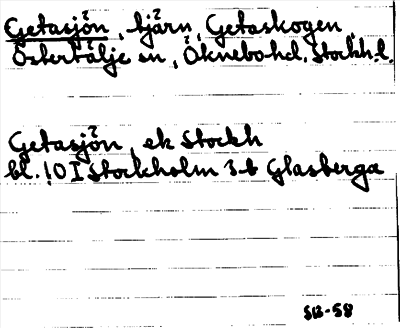 Getasjön, tjärn, Getaskogen,
Östertälje sn, Öknebo hd. Stockh.l.
Getasjön, ek Stockh
bl. 10 I Stockholm 3-b Glasberga
SB-58